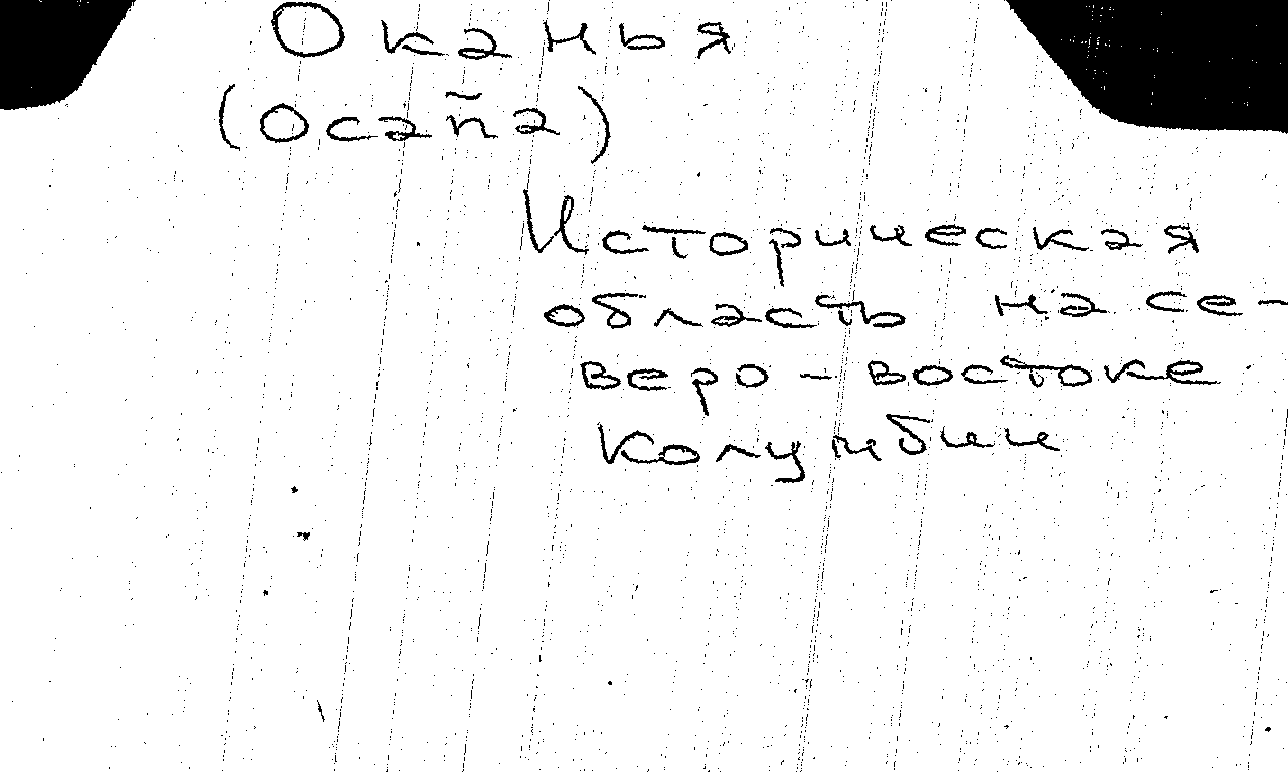 Оканья
(Ocaña)
Историческая
область на се-
веро-востоке
Колумбии